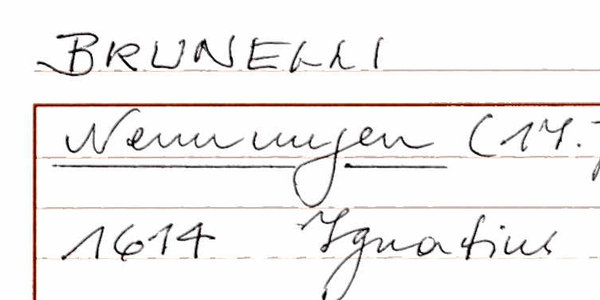 BRUNELLI
Nennungen (17.
1614 Ignatius